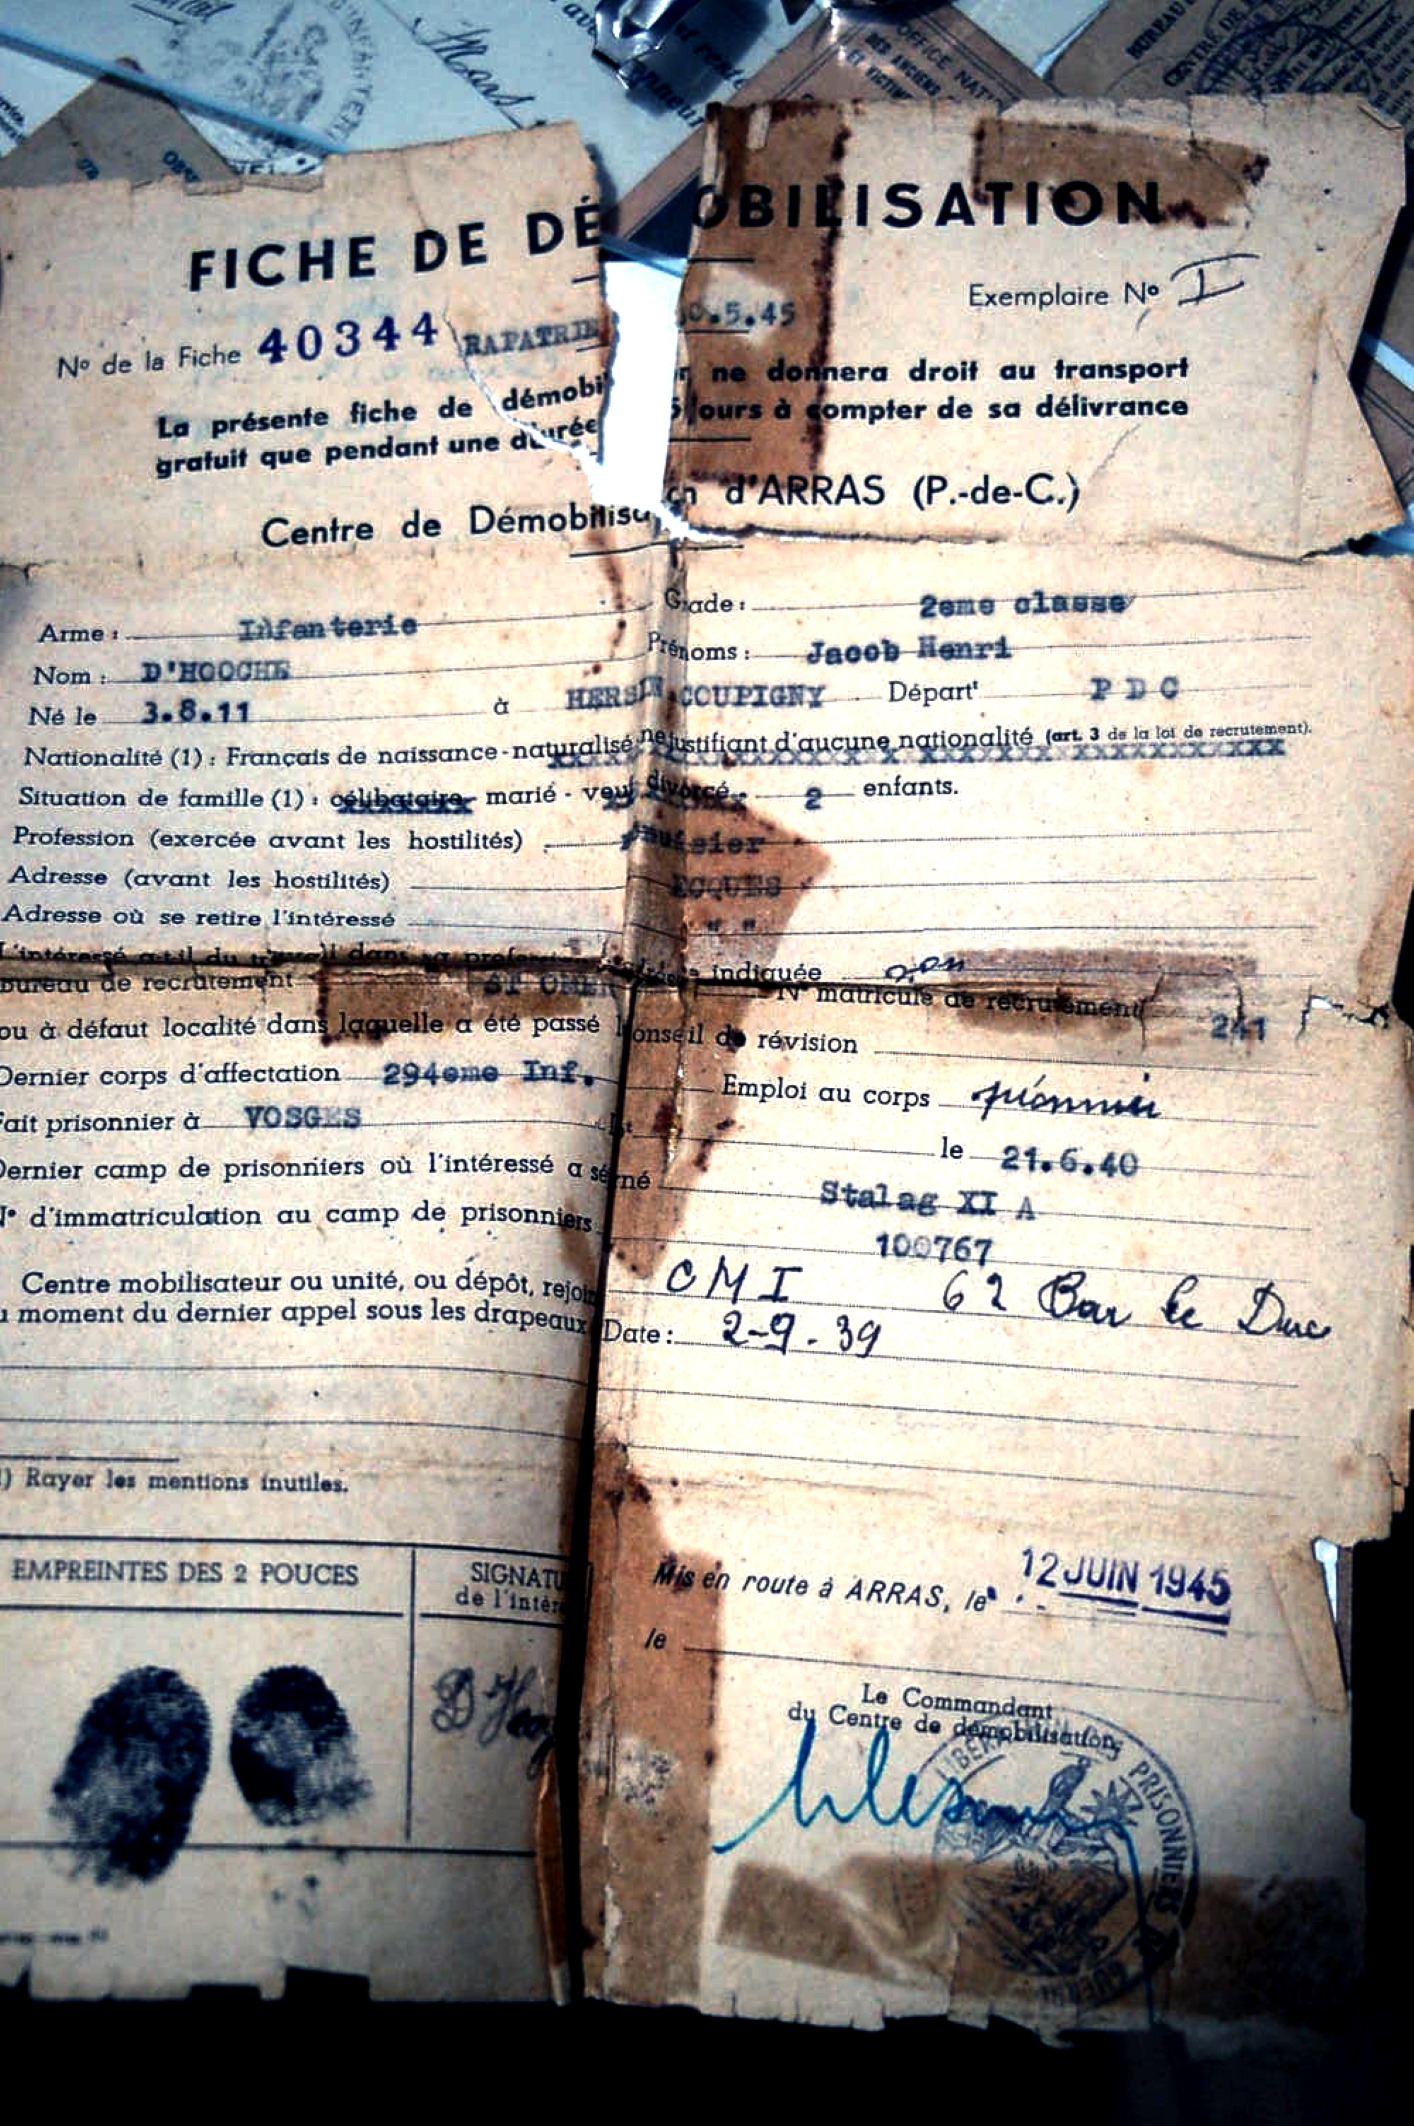 FICHE DE DÉ OBILISATION
Exemplaire Nº I
Nº de la Fiche 40344 RAPATRIE 0.5.45
La présente fiche de démobi r, ne donnera droit au transport
gratuit que pendant une durée jours à compter de sa délivrance
Centre de Démobilisa on d'ARRAS (P.-de-C.)
Arme : Infanterie Grade : 2eme classe
Nom : D'HOOCHE Prénoms : Jacob Henri
Né le 3.8.11 à HERSIN COUPIGNY Départ' P D C
Nationalité (1) : Français de naissance - naturalisé ne justifiant d'aucune nationalité (art. 3 de la loi de recrutement).
Situation de famille (1) : célibataire - marié - veuf divorcé. 2 enfants.
Profession (exercée avant les hostilités)
Adresse (avant les hostilités) ECQUES
Adresse où se retire l'intéressé " "
L'intéressé a-t-il du travail dans sa indiquée non
bureau de recrutement ST OMER Nº matricule de recrutement 241
ou à défaut localité dans laquelle a été passé conseil de révision
Dernier corps d'affectation 294eme Inf. Emploi au corps pionnier
Fait prisonnier à VOSGES le 21.6.40
Dernier camp de prisonniers où l'intéressé a sé né Stalag XI A
Nº d'immatriculation au camp de prisonniers 100767
Centre mobilisateur ou unité, ou dépôt, rejoin CMI 62 Bar le Duc
u moment du dernier appel sous les drapeaux Date : 2-9-39
1) Rayer les mentions inutiles.
EMPREINTES DES 2 POUCES
SIGNATU
de l'intér
D'Hoo
Mis en route à ARRAS, le 12 JUIN 1945
le
Le Commandant
du Centre de démobilisation,
LIBER PRISONNIERS DE GUERRE